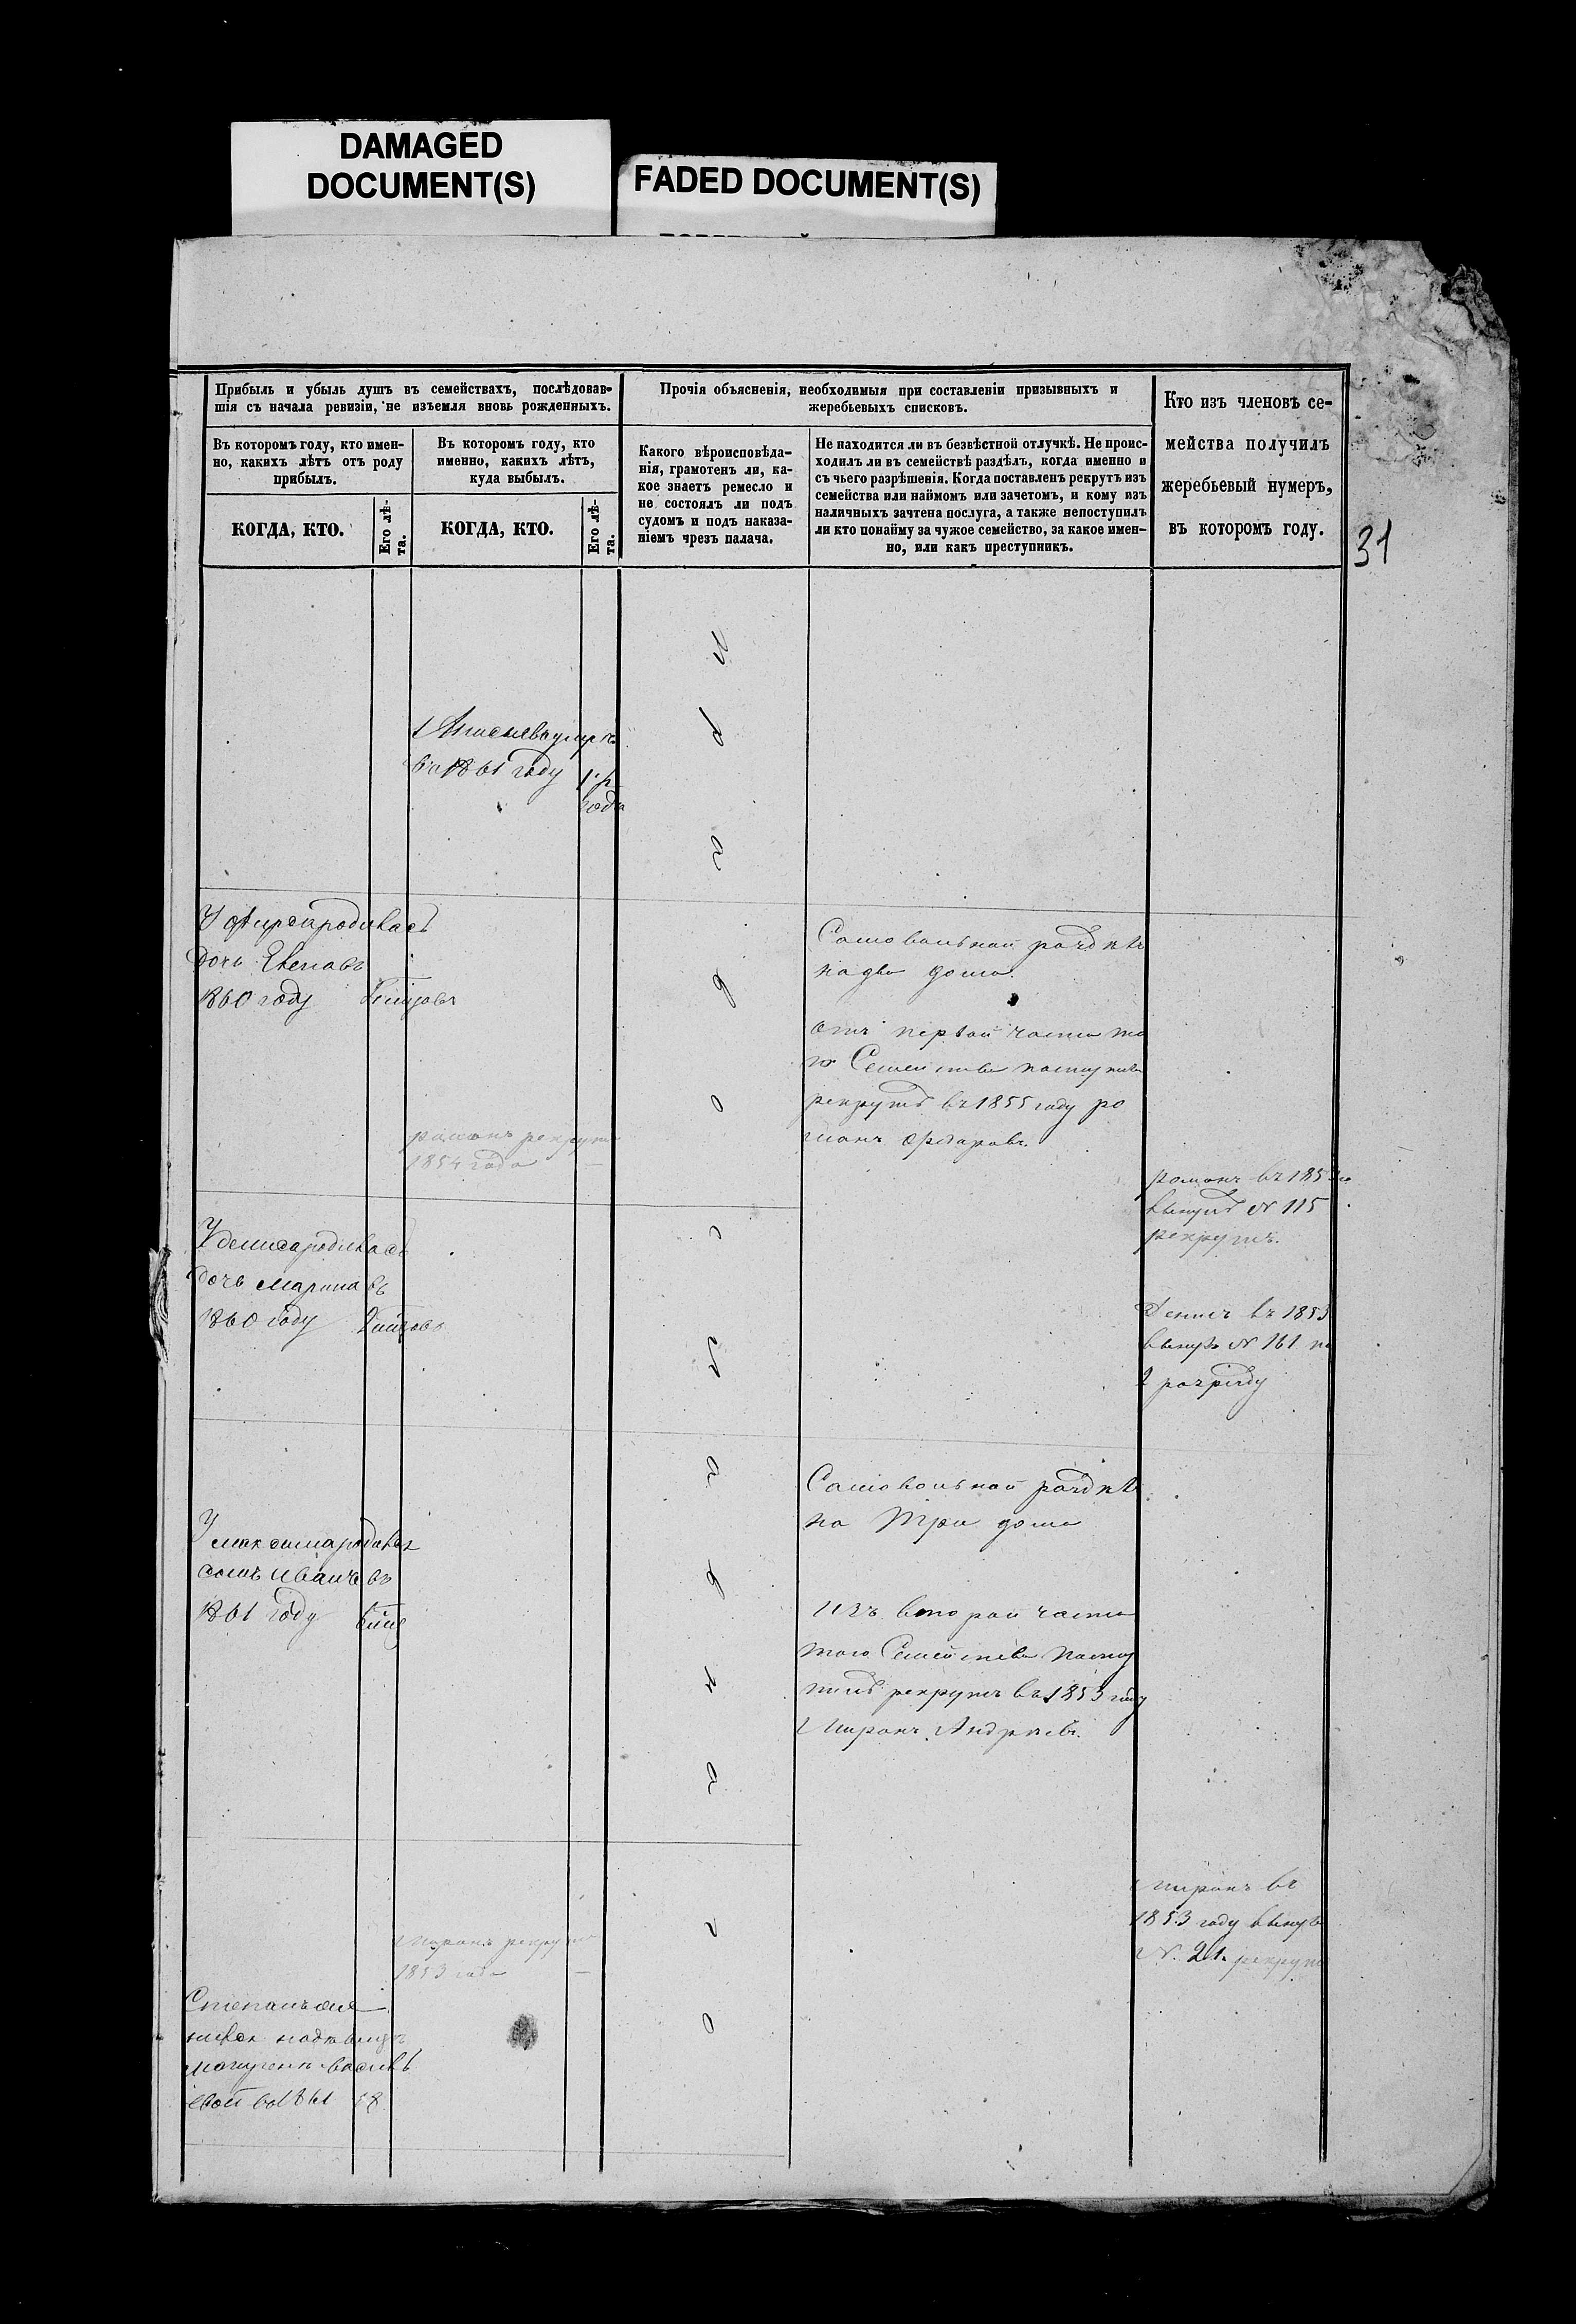 DAMAGED
DOCUMENT(S)
FADED DOCUMENT(S)
Прибыль и убыль душъ въ семействахъ, послѣдовав-
шія съ начала ревизіи, не изъемля вновь рожденныхъ.
Прочія объясненія, необходимыя при составленіи призывныхъ и
жеребьевыхъ списковъ.
Кто изъ членовъ се-
мейства получилъ
жеребьевый нумеръ,
въ которомъ году.
Въ которомъ году, кто имен-
но, какихъ лѣтъ отъ роду
прибылъ.
Въ которомъ году, кто
именно, какихъ лѣтъ,
куда выбылъ.
Какого вѣроисповѣда-
нія, грамотенъ ли, ка-
кое знаетъ ремесло и
не состоялъ ли подъ
судомъ и подъ наказа-
ніемъ чрезъ палача.
Не находится ли въ безвѣстной отлучкѣ. Не проис-
ходилъ ли въ семействѣ раздѣлъ, когда именно и
съ чьего разрѣшенія. Когда поставленъ рекрутъ изъ
семейства или наймомъ или зачетомъ, и кому изъ
наличныхъ зачтена послуга, а также непоступилъ
ли кто понайму за чужое семейство, за какое имен-
но, или какъ преступникъ.
КОГДА, КТО.
Его лѣ-
та.
КОГДА, КТО.
Его лѣ-
та.
31
въ 1861 году
года
п
р
а
в
о
с
л
а
в
н
а
г
о
родилась
дочь Елена въ
1860 году
Самовольной раздѣлъ
на два дома
отъ первой части то
го Семейства поступилъ
рекрутъ въ 1855 году Ро
манъ
романъ рекрутъ
1854 года
романъ въ 185
вынулъ N 115
рекрутъ.
У дениса родилась
дочь Марина въ
1860 году
Денисъ въ 1853
вынулъ N 161 по
2 разряду
Самовольной раздѣлъ
на три дома
У максима родился
сынъ Иванъ въ
1861 году
Изъ второй части
того Семейства посту
пилъ рекрутъ въ 1853 году
Миронъ Андреевъ.
Миронъ въ
1853 году вынулъ
N. 21. рекрутъ
Миронъ рекрутъ
1853 года
Степанъ